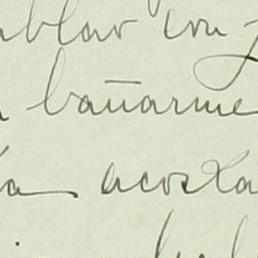 ablar con
bañarme
a acosta